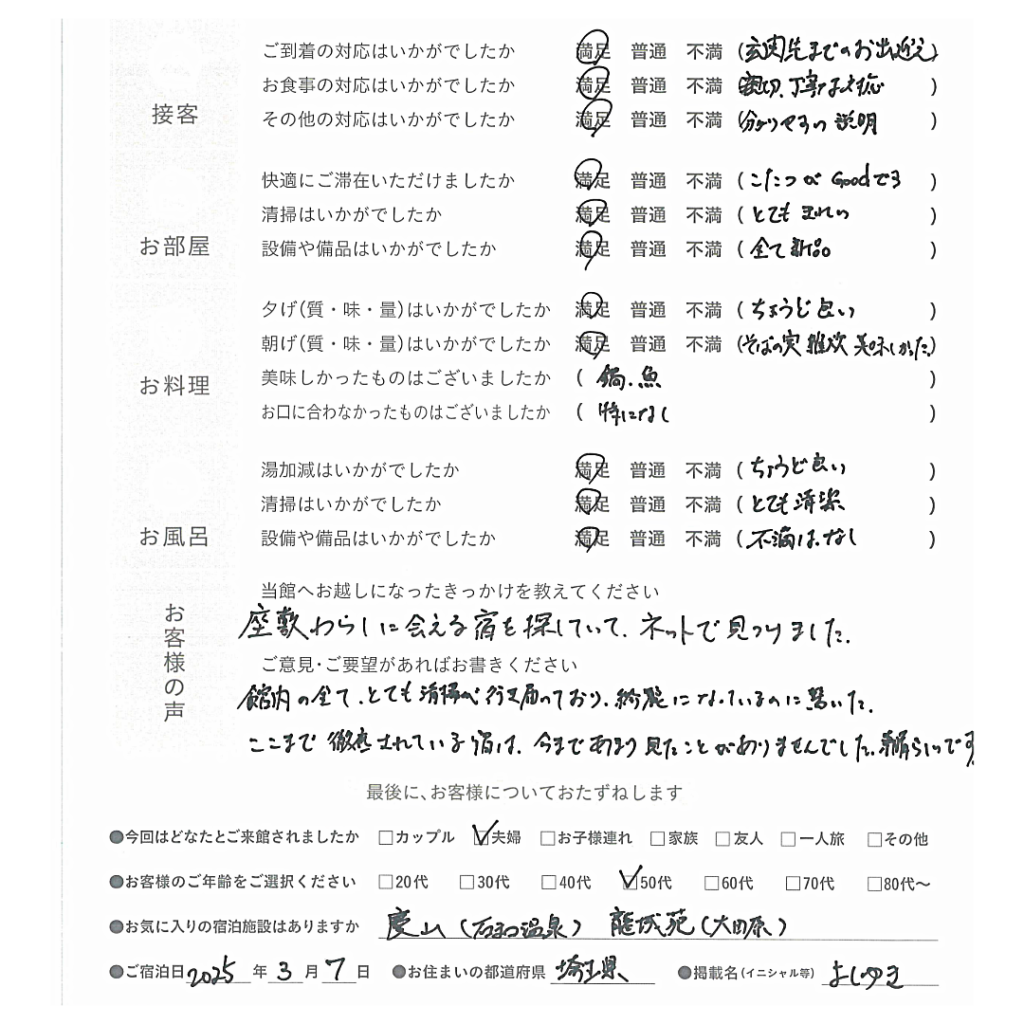 接客
ご到着の対応はいかがでしたか 満足 普通 不満 (玄関先までのお出迎え)
お食事の対応はいかがでしたか 満足 普通 不満 (親切、丁寧な対応)
その他の対応はいかがでしたか 満足 普通 不満 (分かりやすい説明)
お部屋
快適にご滞在いただけましたか 満足 普通 不満 (こたつがGoodです)
清掃はいかがでしたか 満足 普通 不満 (とてもきれい)
設備や備品はいかがでしたか 満足 普通 不満 (全て新品)
お料理
夕げ(質・味・量)はいかがでしたか 満足 普通 不満 (ちょうど良い)
朝げ(質・味・量)はいかがでしたか 満足 普通 不満 (そばの実雑炊美味しかった)
美味しかったものはございましたか (鍋、魚)
お口に合わなかったものはございましたか (特になし)
お風呂
湯加減はいかがでしたか 満足 普通 不満 (ちょうど良い)
清掃はいかがでしたか 満足 普通 不満 (とても清潔)
設備や備品はいかがでしたか 満足 普通 不満 (不満は、なし)
お客様の声
当館へお越しになったきっかけを教えてください
座敷わらしに会える宿を探していて、ネットで見つけました。
ご意見・ご要望があればお書きください
館内の全て、とても清掃が行き届いており、綺麗になっているのに驚いた。
ここまで徹底されている宿は、今まであまり見たことがありませんでした。素晴らしいです
最後に、お客様についておたずねします
●今回はどなたとご来館されましたか □カップル ☑夫婦 □お子様連れ □家族 □友人 □一人旅 □その他
●お客様のご年齢をご選択ください □20代 □30代 □40代 ☑50代 □60代 □70代 □80代〜
●お気に入りの宿泊施設はありますか 慶山(石和温泉) 龍城苑(大田原)
●ご宿泊日 2025年3月7日 ●お住まいの都道府県 埼玉県 ●掲載名(イニシャル等) よしゆき